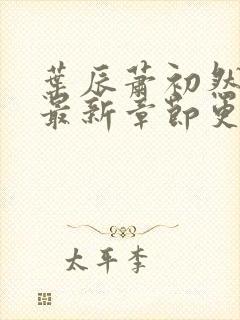 葉辰蕭初然
最新章節更
太平李